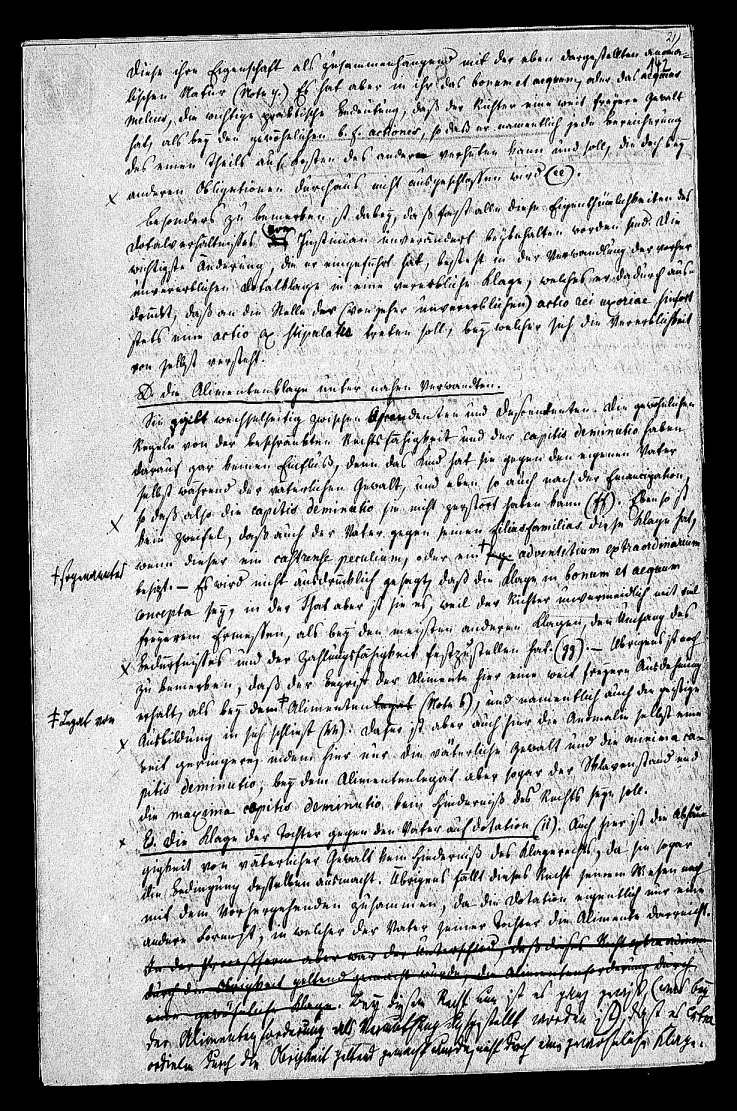 21)
142
diese ihre Eigenschaft als zusammenhängend mit der eben dargestellten anoma-
lischen Natur (Note y.) Es hat aber in ihr das bonum et aequum, oder das aequius
melius, die wichtige praktische Bedeutung, daß der Richter eine weit freyere Gewalt
hat, als bey den gewöhnlichen b. f. actiones, so daß er namentlich jede Bereicherung
des einen Theils auf Kosten des andern verhüten kann und soll, die doch bey
anderen Obligationen durchaus nicht ausgeschlossen wird (ee).
Besonders zu bemerken ist dabey, daß fast alle diese Eigenthümlichkeiten des
Dotalverhältnisses von Justinian unverändert beybehalten worden sind. Die
wichtigste Änderung, die er eingeführt hat, besteht in der Verwandlung der vorher
unvererblichen Dotalklage in eine vererbliche Klage, welches er dadurch aus-
drückt, daß an die Stelle der (von jeher unvererblichen) actio rei uxoriae hinfort
stets eine actio ex stipulatu treten soll, bey welcher sich die Vererblichkeit
von selbst versteht.
D. die Alimentenklage unter nahen Verwandten.
Sie gilt wechselseitig zwischen Ascendenten und Descendenten. Die gewöhnlichen
Regeln von der beschränkten Rechtsfähigkeit und der capitis deminutio haben
darauf gar keinen Einfluß, denn das Kind hat sie gegen den eigenen Vater
selbst während der väterlichen Gewalt, und eben so auch nach der Emancipation,
so daß also die capitis deminutio sie nicht zerstört haben kann (ff). Eben so ist
kein Zweifel, daß auch der Vater gegen seinen filiusfamilias diese Klage hat,
wenn dieser ein castrense peculium, oder ein adventitium extraordinarium
† sogenanntes
besitzt. — Es wird nicht ausdrücklich gesagt, daß die Klage in bonum et aequum
concepta sey, in der That aber ist sie es, weil der Richter unvermeidlich mit viel
freyerem Ermessen, als bey den meisten anderen Klagen, den Umfang des
Bedürfnisses und der Zahlungsfähigkeit festzustellen hat. (gg). — Übrigens ist noch
zu bemerken, daß der Begriff der Alimente hier eine weit freyere Ausdehnung
erhält, als bey dem ‡ Alimenten (Note b), und namentlich auch die geistige
‡ Legat von
Ausbildung in sich schließt (hh): dafür ist aber auch hier die Anomalie selbst eine
weit geringere, indem hier nur die väterliche Gewalt und die minima ca-
pitis deminutio, bey dem Alimentenlegat aber sogar der Sklavenstand und
die maxima capitis deminutio kein Hinderniß des Rechts seyn soll.
E. Die Klage der Tochter gegen den Vater auf Dotation (ii). Auch hier ist die Abhän-
gigkeit von väterlicher Gewalt kein Hinderniß des Klagerechts, da sie sogar
die Bedingung desselben ausmacht. Übrigens fällt dieses Recht seinem Wesen nach
mit dem Vorhergehenden zusammen, da die Dotation eigentlich nur eine
andere Form ist, in welcher der Vater seiner Tochter die Alimente darreicht.
In der Proceßform aber war der Unterschied, daß dieses Recht extra ordinem
durch die Obrigkeit geltend gemacht wurde, die Alimentenforderung durch
eine gewöhnliche Klage. Bey diesem Recht nun ist es ganz gewiß (was bey
der Alimentenforderung als Vermuthung aufgestellt worden ist) daß es extra
ordinem durch die Obrigkeit geltend gemacht wurde, nicht durch eine gewöhnliche Klage.